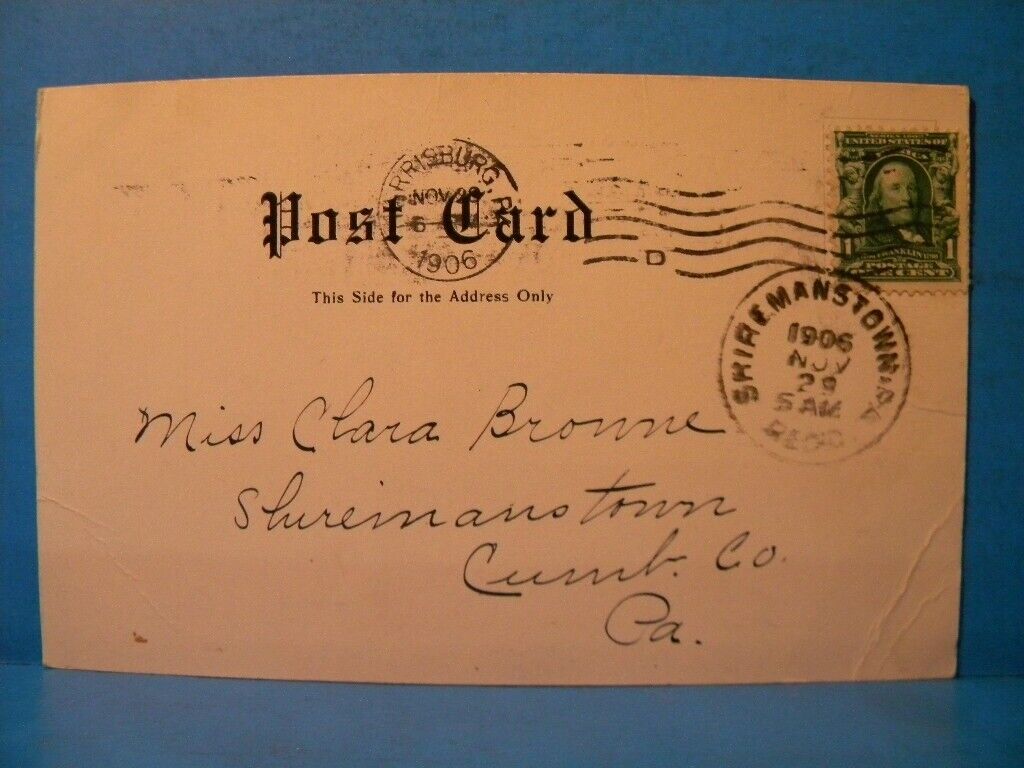 HARRISBURG, PA.
NOV 28
6
1906
D
UNITED STATES OF
AMERICA
FRANKLIN
1 1
POSTAGE
ONE CENT
Post Card
This Side for the Address Only
SHIREMANSTOWN, PA.
1906
NOV
29
5 AM
REC'D
Miss Clara Browne
Shiremanstown
Cumb. Co.
Pa.